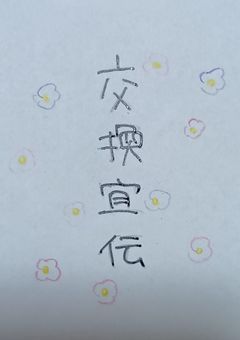 交換宣伝